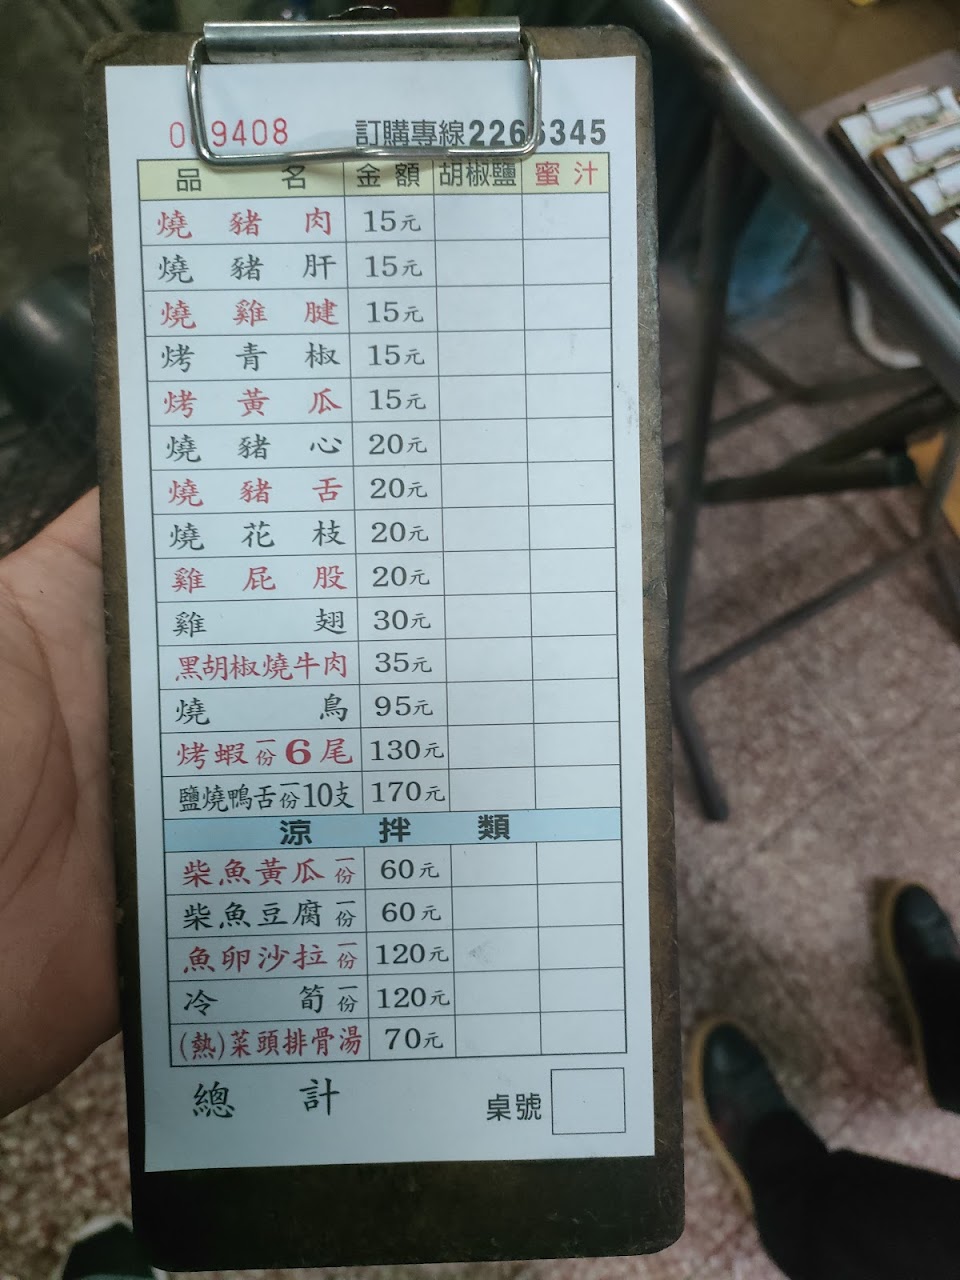 0 9408 訂購專線2266345
品名 金額 胡椒鹽 蜜汁
燒豬肉 15元
燒豬肝 15元
燒雞腱 15元
烤青椒 15元
烤黃瓜 15元
燒豬心 20元
燒豬舌 20元
燒花枝 20元
雞屁股 20元
雞翅 30元
黑胡椒燒牛肉 35元
燒鳥 95元
烤蝦一份6尾 130元
鹽燒鴨舌一份10支 170元
涼拌類
柴魚黃瓜一份 60元
柴魚豆腐一份 60元
魚卵沙拉一份 120元
冷筍一份 120元
(熱)菜頭排骨湯 70元
總計 桌號